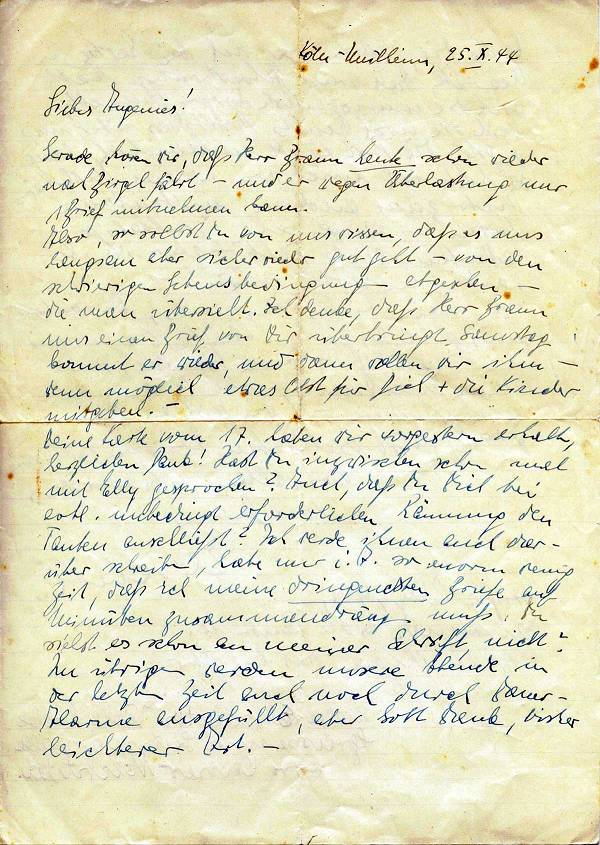 Köln-Mülheim, 25. X. 44
Liebes Ingenies!
Gerade hören wir, daß Herr Braun heute schon wieder
nach fährt – und er wegen Überlastung nur
1 Brief mitnehmen kann.
Also, so sollst Du von uns wissen, daß es uns
langsam aber sicher wieder gut geht – von den
schwierigen Lebensbedingungen – abgesehen –
die man übersieht. Ich denke, daß Herr Braun
uns einen Brief von Dir überbringt, Samstag
kommt er wieder, und dann wollen wir ihm –
wenn möglich etwas Obst für Dich + die Kinder
mitgeben. –
Deine Karte vom 17. haben wir vorgestern erhalten,
herzlichen Dank! Hast Du inzwischen schon mal
mit Elly gesprochen? Auch, daß Du Dich bei
evtl. unbedingt erforderlichen Räumung den
Tanten anschließt? Ich werde ihnen auch dar-
über schreiben, habe nur i. Z. so enorm wenig
Zeit, daß ich meine dringendsten Briefe auf
Minuten zusammendrängen muß. Du
siehst es schon an meiner Schrift, nicht?
Im übrigen werden unsere Abende in
der letzten Zeit auch noch durch Dauer-
Alarme ausgefüllt, aber Gott Dank, bisher
leichterer Art. –